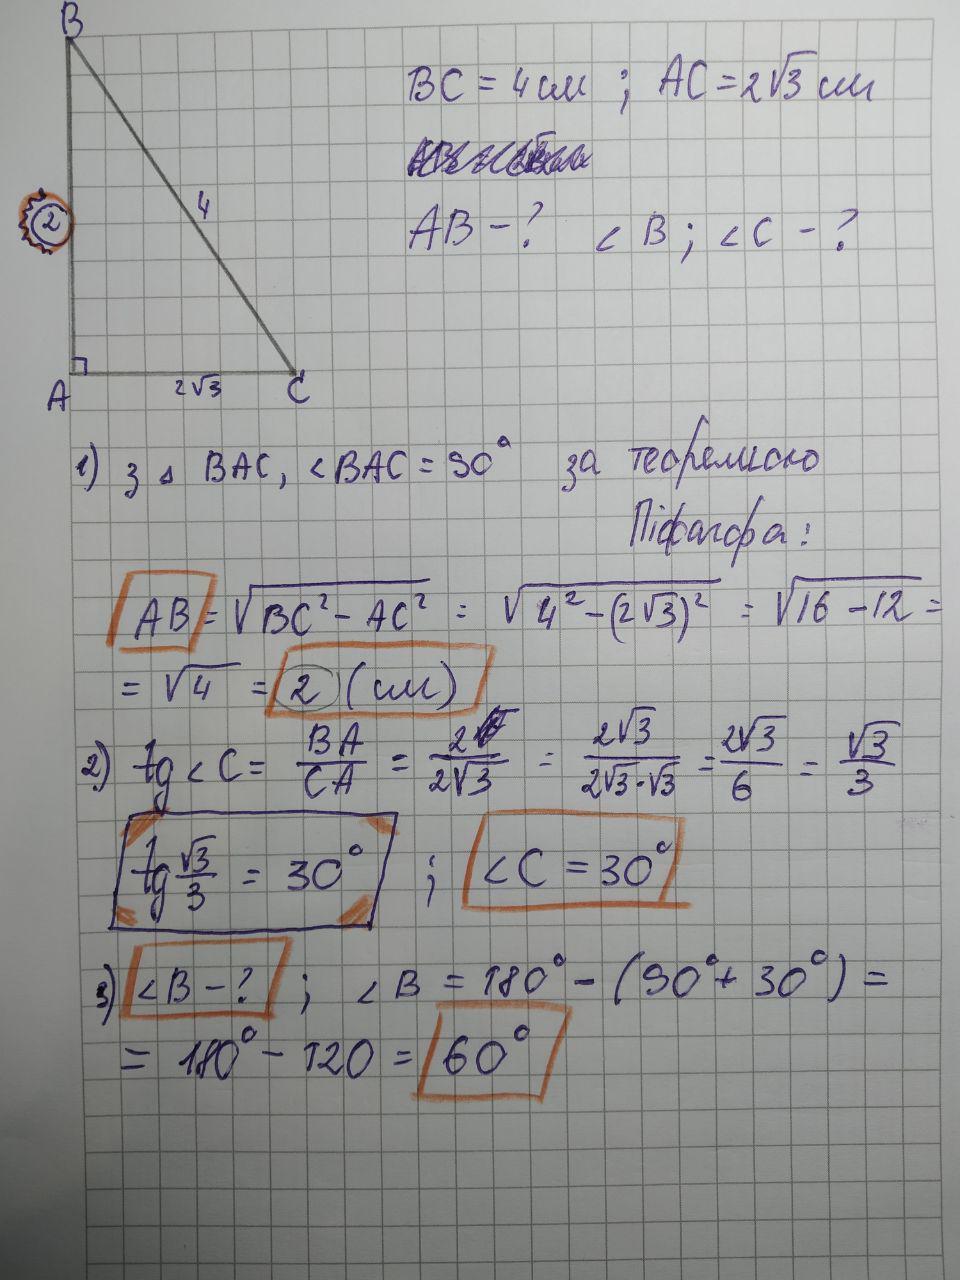 B
BC = 4 см ; AC = 2√3 см
4
2
AB - ? ∠ B ; ∠ C - ?
A
2√3
C
1) з △ BAC, ∠BAC = 90° за теоремою
Піфагора:
AB = √(BC² - AC²) = √(4² - (2√3)²) = √(16 - 12) =
= √4 = 2 (см)
2) tg ∠ C = BA/CA = 2/2√3 = 2√3/2√3·√3 = 2√3/6 = √3/3
tg √3/3 = 30° ; ∠C = 30°
3) ∠B - ? ; ∠B = 180° - (90° + 30°) =
= 180° - 120 = 60°